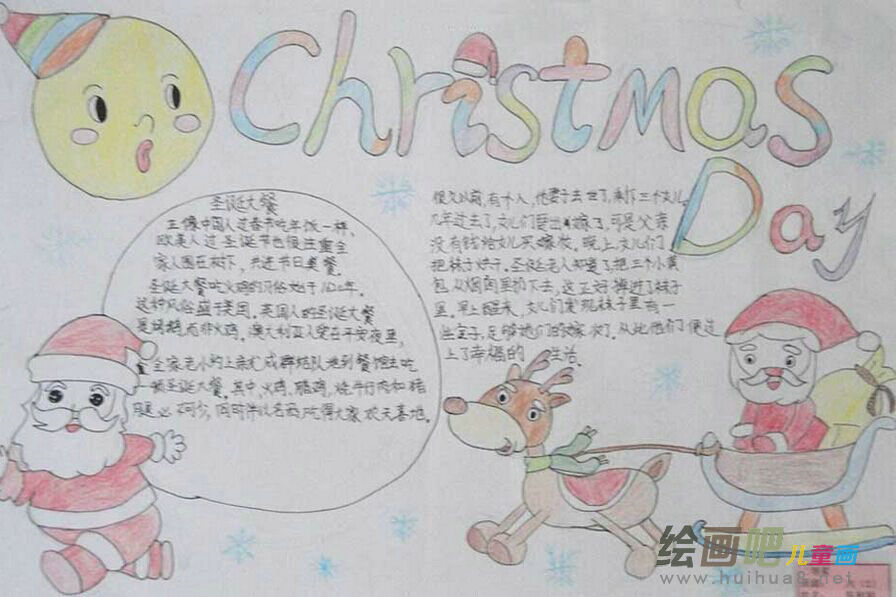 Christmas
Day
圣诞大餐
正像中国人过春节吃年饭一样,
欧美人过圣诞节也很注重全
家人围在树下,共进节日美餐。
圣诞大餐吃火鸡的习俗始于1620年。
这种风俗盛于美国。英国人的圣诞大餐
是烤鹅,而非火鸡。澳大利亚人爱在平安夜里,
全家老小约上亲友成群结队地到餐馆去吃
一顿圣诞大餐。其中,火鸡、腊鸡、烧牛仔肉和猪
腿必不可少,同时伴以名酒,吃得大家欢天喜地。
很久以前,有个人,他妻子去世了,剩下三个女儿,
几年过去了,女儿们要出嫁了,可是父亲
没有钱给女儿买嫁妆。晚上,女儿们
把袜子烘干。圣诞老人知道了,把三个小黄
包从烟囱里扔下去,这正好掉进了袜子
里。早上醒来,女儿们发现袜子里有一
些金子,足够她们的嫁妆了。从此他们便过
上了幸福的 生活。
绘画吧儿童画
www.huihua8.net